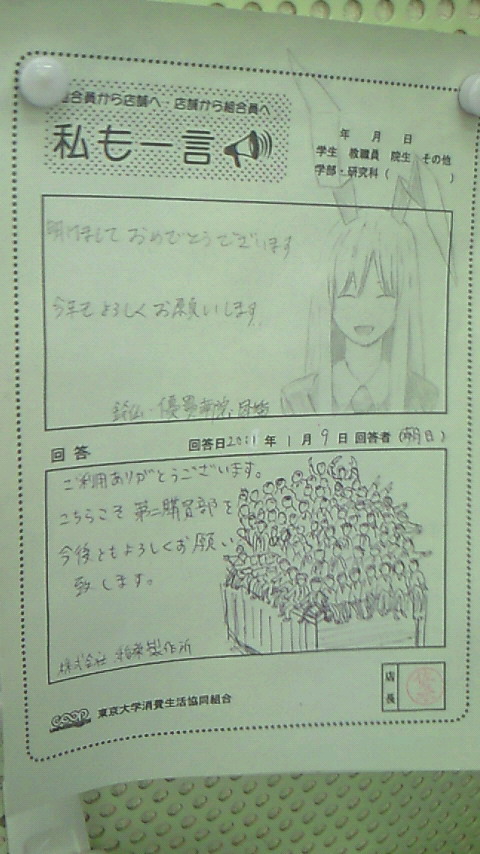 組合員から店舗へ 店舗から組合員へ
私も一言
年 月 日
学生 教職員 院生 その他
学部・研究科( )
明けまして おめでとうございます
今年も よろしく お願いします。
鈴仙・優曇華院・因幡
回答
回答日 2011年 1月 9日 回答者 (朝日)
ご利用ありがとうございます。
こちらこそ 第二購買部を
今後ともよろしくお願い
致します。
株式会社 製作所
店長
coop 東京大学消費生活協同組合